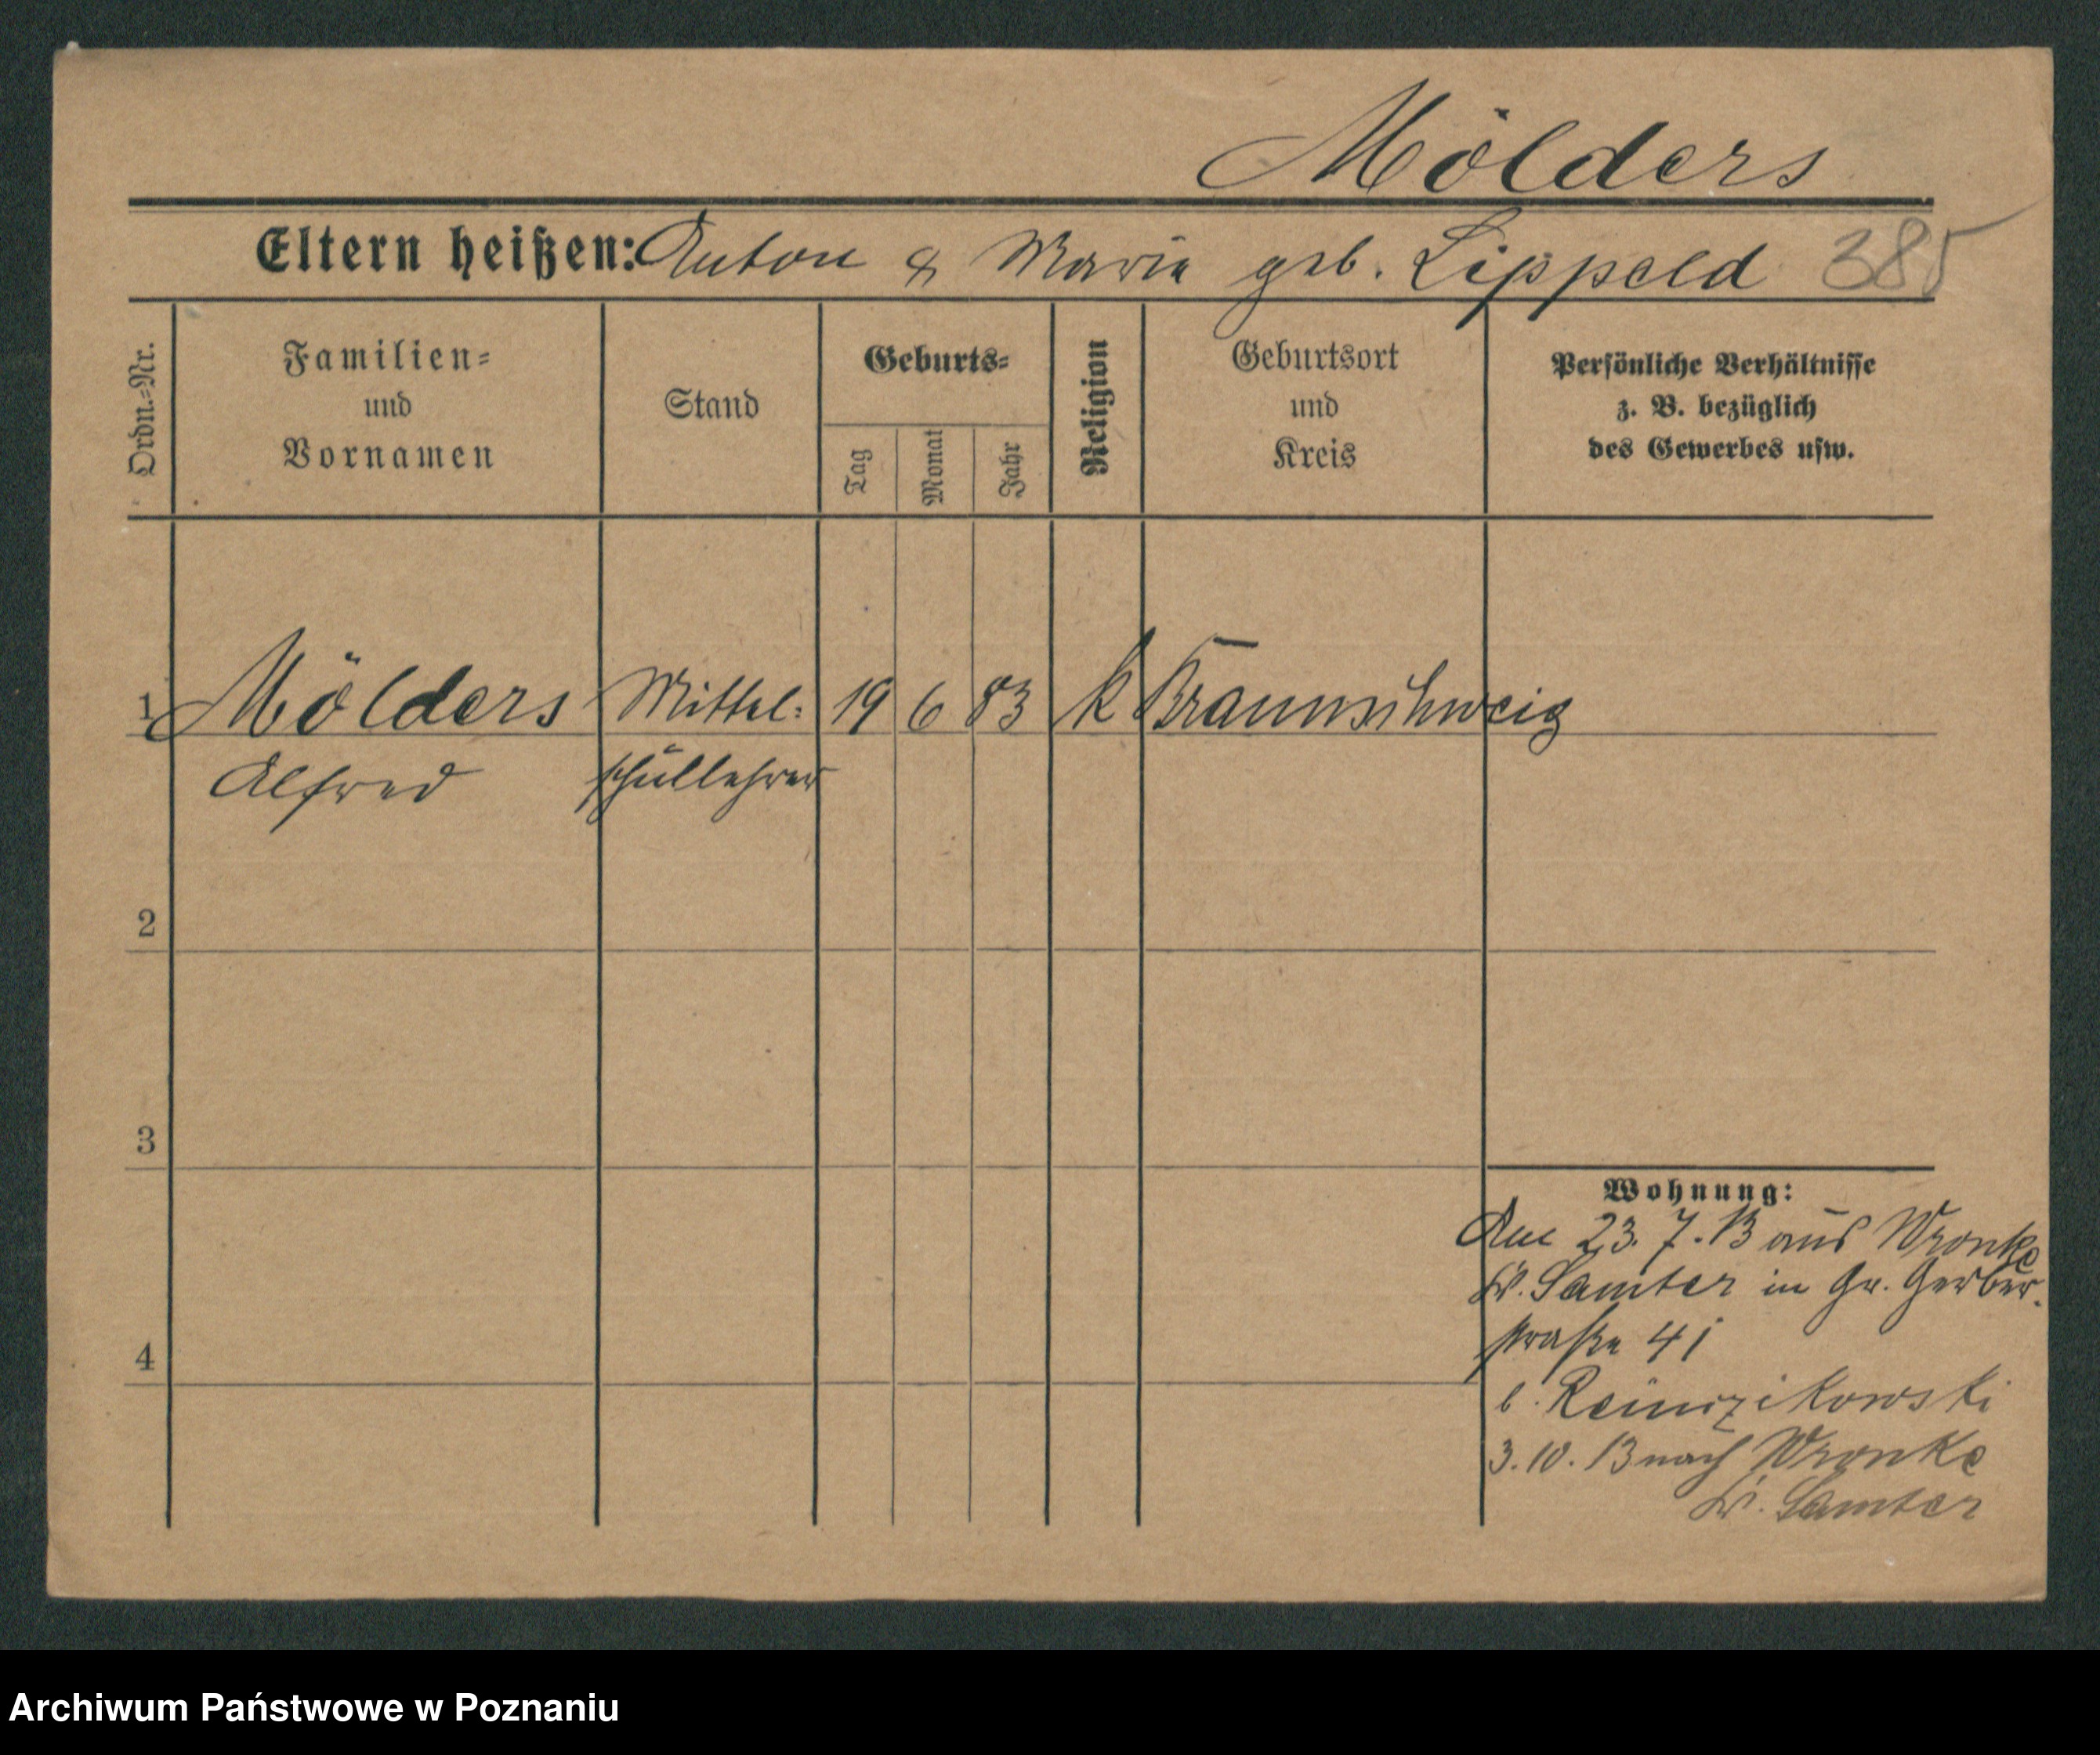 Mölders
Eltern heißen: Anton & Maria geb. Lippeld 385
Ordn.=Nr.
Familien=
und
Vornamen
Stand
Geburts=
Tag
Monat
Jahr
Religion
Geburtsort
und
Kreis
Persönliche Verhältnisse
z. B. bezüglich
des Gewerbes usw.
1 Mölders Mittel= 19 6 83 k Braunschweig
Alfred schullehrer
2
3
4
Wohnung:
Am 23. 7. 13 aus Wronke
Kr. Samter in Gr. Gerber-
straße 41
b.
3. 10. 13 nach Wronke
Kr. Samter
Archiwum Państwowe w Poznaniu